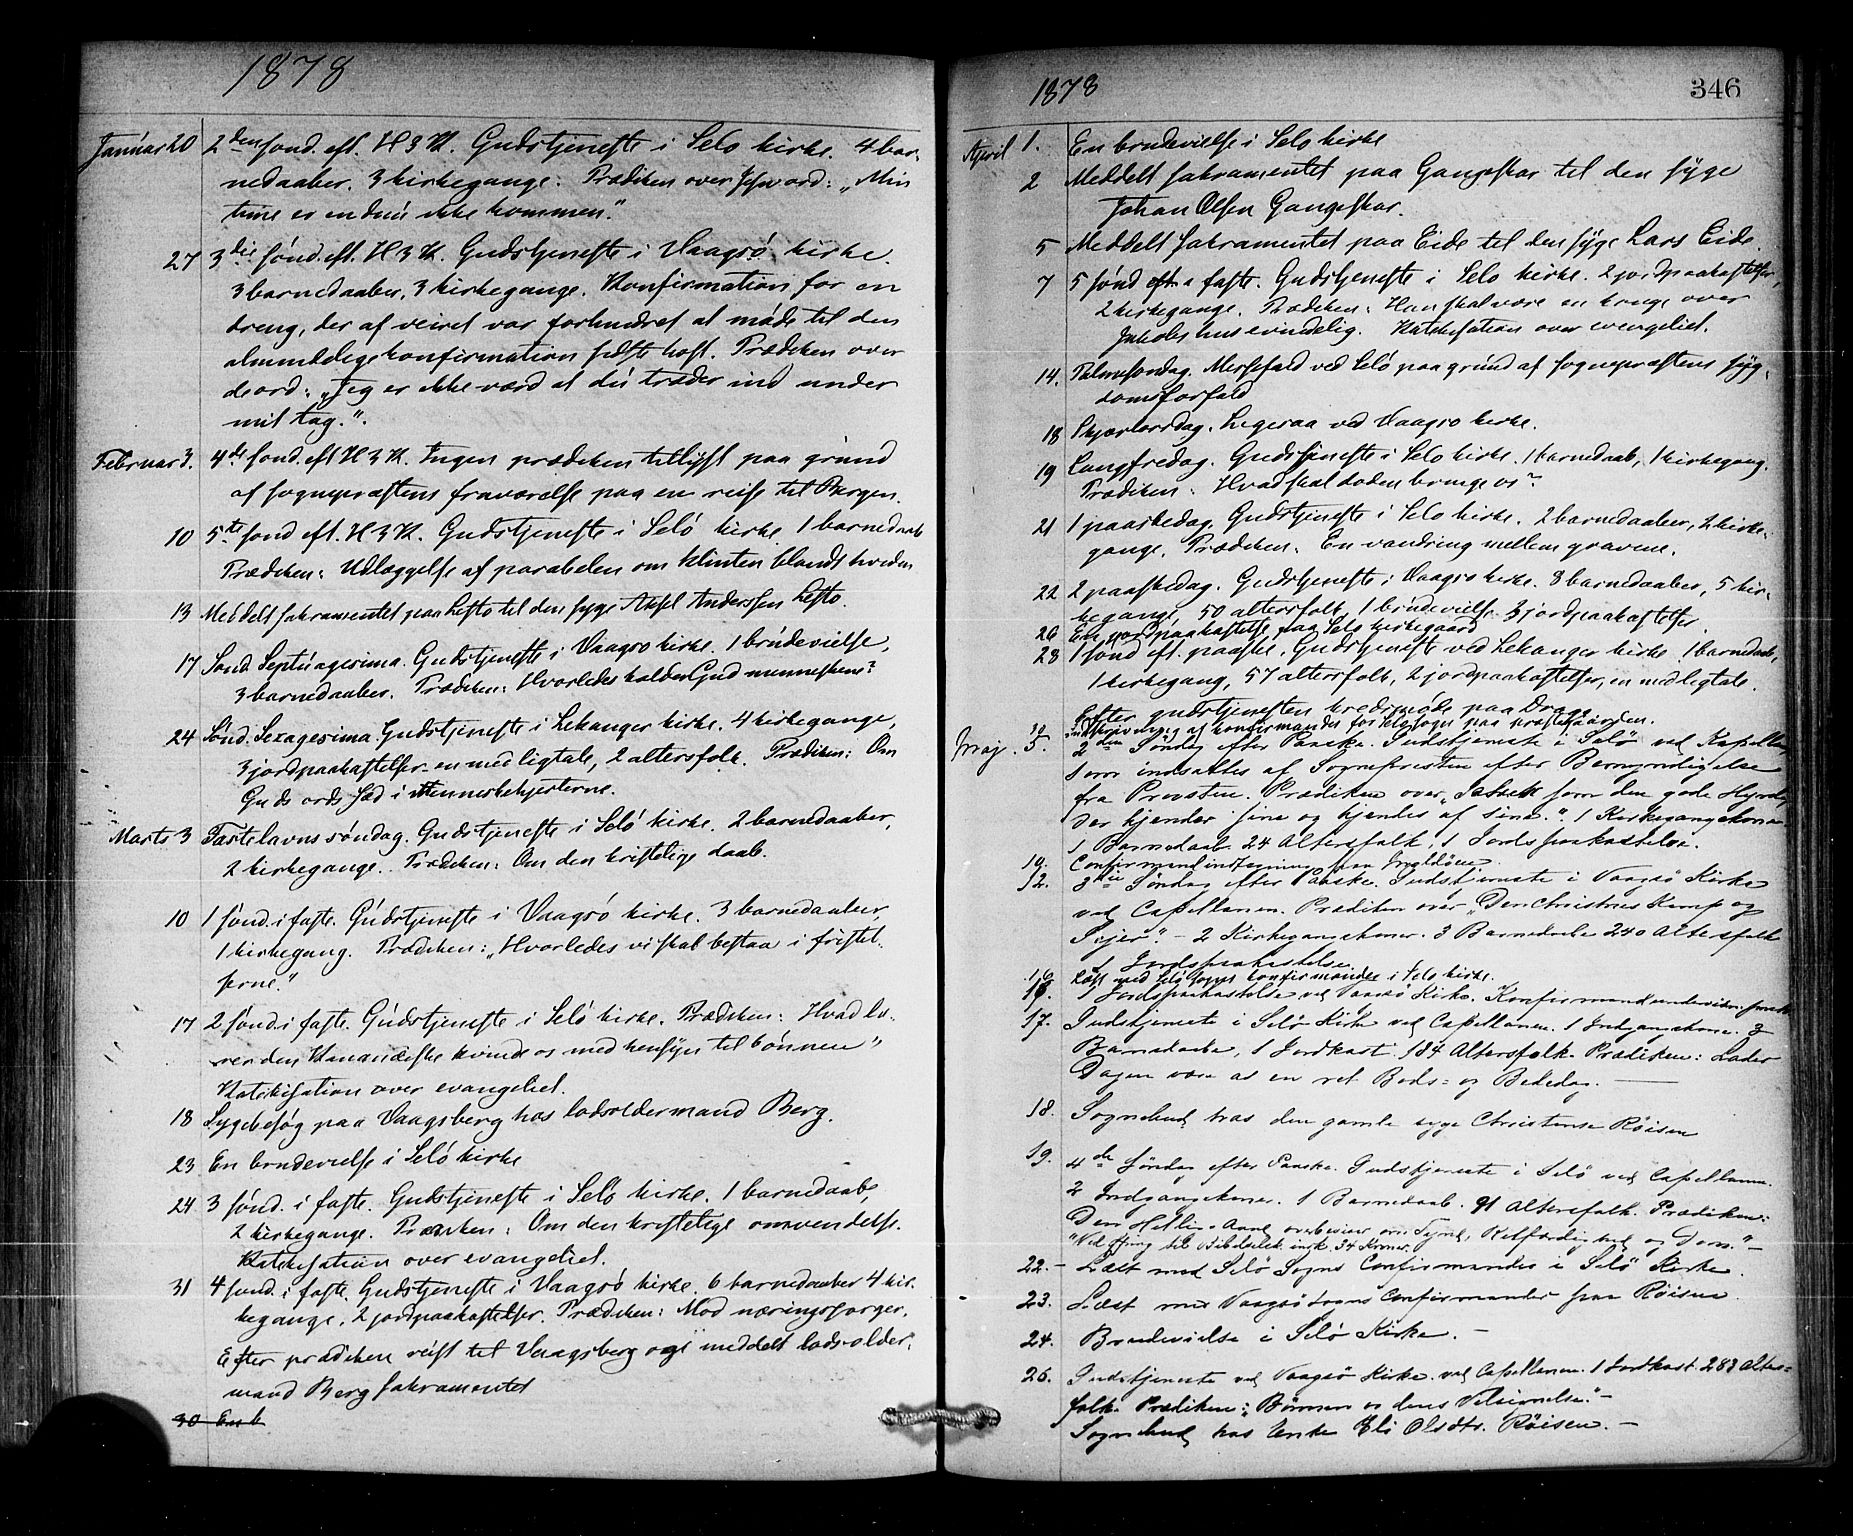 1878
Januar 20 2den sønd. eft. H 3 K. Gudstjeneste i Selø kirke. 4 bar-
nedaaber. 3 kirkegange. Prædiken over Jesu ord: "Min
time er endnu ikke kommen."
27 3die sønd. eft. H 3 K. Gudstjeneste i Vaagsø kirke.
3 barnedaaber, 3 kirkegange. Konfirmation for en
dreng, der af veiret var forhindret at møde til den
almindelige konfirmation sidste høst. Prædiken over
de ord: "Jeg er ikke værd at du træder ind under
mit tag."
Februar 3. 4de sønd. eft H 3 K. Ingen prædiken tillyst paa grund
af sognepræstens fraværelse paa en reise til Bergen.
10 5te sønd eft. H 3 K. Gudstjeneste i Selø kirke. 1 barnedaab
Prædiken: Udlæggelse af parabelen om klinten blandt hveden
13 Meddelt sakramentet paa Lefto til den syge Aksel Anderssen Lefto.
17 Sønd Septuagesima. Gudstjeneste i Vaagsø kirke. 1 brudevielse,
3 barnedaaber. Prædiken: Hvorledes kalder Gud menneskene?
24 Sønd. Sexagesima. Gudstjeneste i Lekanger kirke. 4 kirkegange,
3 jordpaakastelser - en med ligtale, 2 altersfolk. Prædiken: Om
Guds ords sæd i menneskehjerterne.
Marts 3 Fastelavnssøndag. Gudstjeneste i Selø kirke. 2 barnedaaber,
2 kirkegange. Prædiken: Om den kristelige daab.
10 1 sønd. i faste. Gudstjeneste i Vaagsø kirke. 3 barnedaaber,
1 kirkegang. Prædiken: "Hvorledes vi skal bestaa i fristel-
serne."
17 2 sønd. i faste. Gudstjeneste i Selø kirke. Prædiken: Hvad læ-
rer den kananæiske kvinde os med hensyn til bønnen"
Katekisation over evangeliet.
18 Sygebesøg paa Vaagsberg hos lodsoldermand Berg.
23 En brudevielse i Selø kirke
24 3 sønd. i faste. Gudstjeneste i Selø kirke. 1 barnedaab,
2 kirkegange. Prædiken: Om den kristelige omvendelse.
Katekisation over evangeliet.
31 4 sønd. i faste. Gudstjeneste i Vaagsø kirke. 6 barnedaaber 4 kir-
kegange, 2 jordpaakastelser. Prædiken: Mod næringssorger.
Efter prædiken reist til Vaagsberg og meddelt lods-older-
mand Berg sakramentet
30 En b
1878
346
April 1. En brudevielse i Selø kirke
2 Meddelt sakramentet paa Gangeskar til den syge
Johan Olsen Gangeskar.
5 Meddelt sakramentet paa Eide til den syge Lars Eide.
7 5 sønd i faste. Gudstjeneste i Selø kirke. 2 jordpaakastelser,
2 kirkegange. Prædiken: Han skal være en konge over
Jakobs hus evindelig. Katekisation over evangeliet.
14. Palmesøndag. Messefald ved Selø paa grund af sognepræstens syg-
domsforfald
18 Skjærtorsdag. Ligesaa ved Vaagsø kirke.
19 Langfredag. Gudstjeneste i Selø kirke. 1 barnedaab, 1 kirkegang.
Prædiken: Hvad skal døden bringe os?
21 1 paaskedag. Gudstjeneste i Selø kirke. 2 barnedaaber, 2 kirke-
gange. Prædiken: En vandring mellem gravene.
22 2 paaskedag. Gudstjeneste i Vaagsø kirke. 8 barnedaaber, 5 kir-
kegange, 50 altersfolk, 1 brudevielse 3 jordpaakastelser.
26 En jordpaakastelse paa Selø kirkegaard
28 1 sønd eft. paaske. Gudstjeneste ved Lekanger kirke. 1 barnedaab,
1 kirkegang, 57 altersfolk, 2 jordpaakastelser, en med ligtale.
Efter gudstjenesten kredsmøde paa Drage.
Indskrivning af konfirmander for Selø sogn paa præstegaarden.
Maj. 5. 2den Søndag efter Paaske. Gudstjeneste i Selø ved Kapellan
som indsattes af Sognepresten efter Bemyndigelse
fra Provsten. Prædiken over "Jesus som den gode Hyrde,
der kjender sine og kjendes af sine." 1 Kirkegangskone
1 Barnedaab. 24 Altersfolk, 1 Jordspaakastelse.
Confirmandindtegning paa
12. 3die Søndag efter Paaske. Gudstjeneste i Vaagsø Kirke
ved Capellanen. Prædiken over "Den Christnes Kamp og
Sejer". - 2 Kirkegangskoner. 3 Barnedaabe 240 Altersfolk
1 Jordspaakastelse.
Læst med Selø sogns konfirmander i Selø kirke.
16. 1 Jordspaakastelse ved Vaagsø Kirke.
17. Gudstjeneste i Selø Kirke ved Capellanen. 1 Indgangskone. 3
Barnedaabe, 1 Jordkast. 184 Altersfolk. Prædiken: Lader
Dagen være os en ret Bods- og Bededag.
18. Sognebud hos den gamle syge Christense Røisen
19. 4de Søndag efter Paaske. Gudstjeneste i Selø ved Capellanen.
2 Indgangskoner. 1 Barnedaab. 91 Altersfolk. Prædiken:
Den Hellig-Aand overbeviser om Synd, Retfærdighed og Dom." -
34 Kroner.
22. - Læst med Selø Sogns Confirmander i Selø Kirke.
23. Læst med Vaagsø Sogns Confirmander paa Røisen.
24. Brudevielse i Selø Kirke. -
26. Gudstjeneste ved Vaagsø Kirke ved Capellanen. 1 Jordkast. 283 Alters-
folk. Prædiken: "Bønnen og dens Velsignelse." -
Sognebud hos Enke Eli Olsdtr. Røisen. -